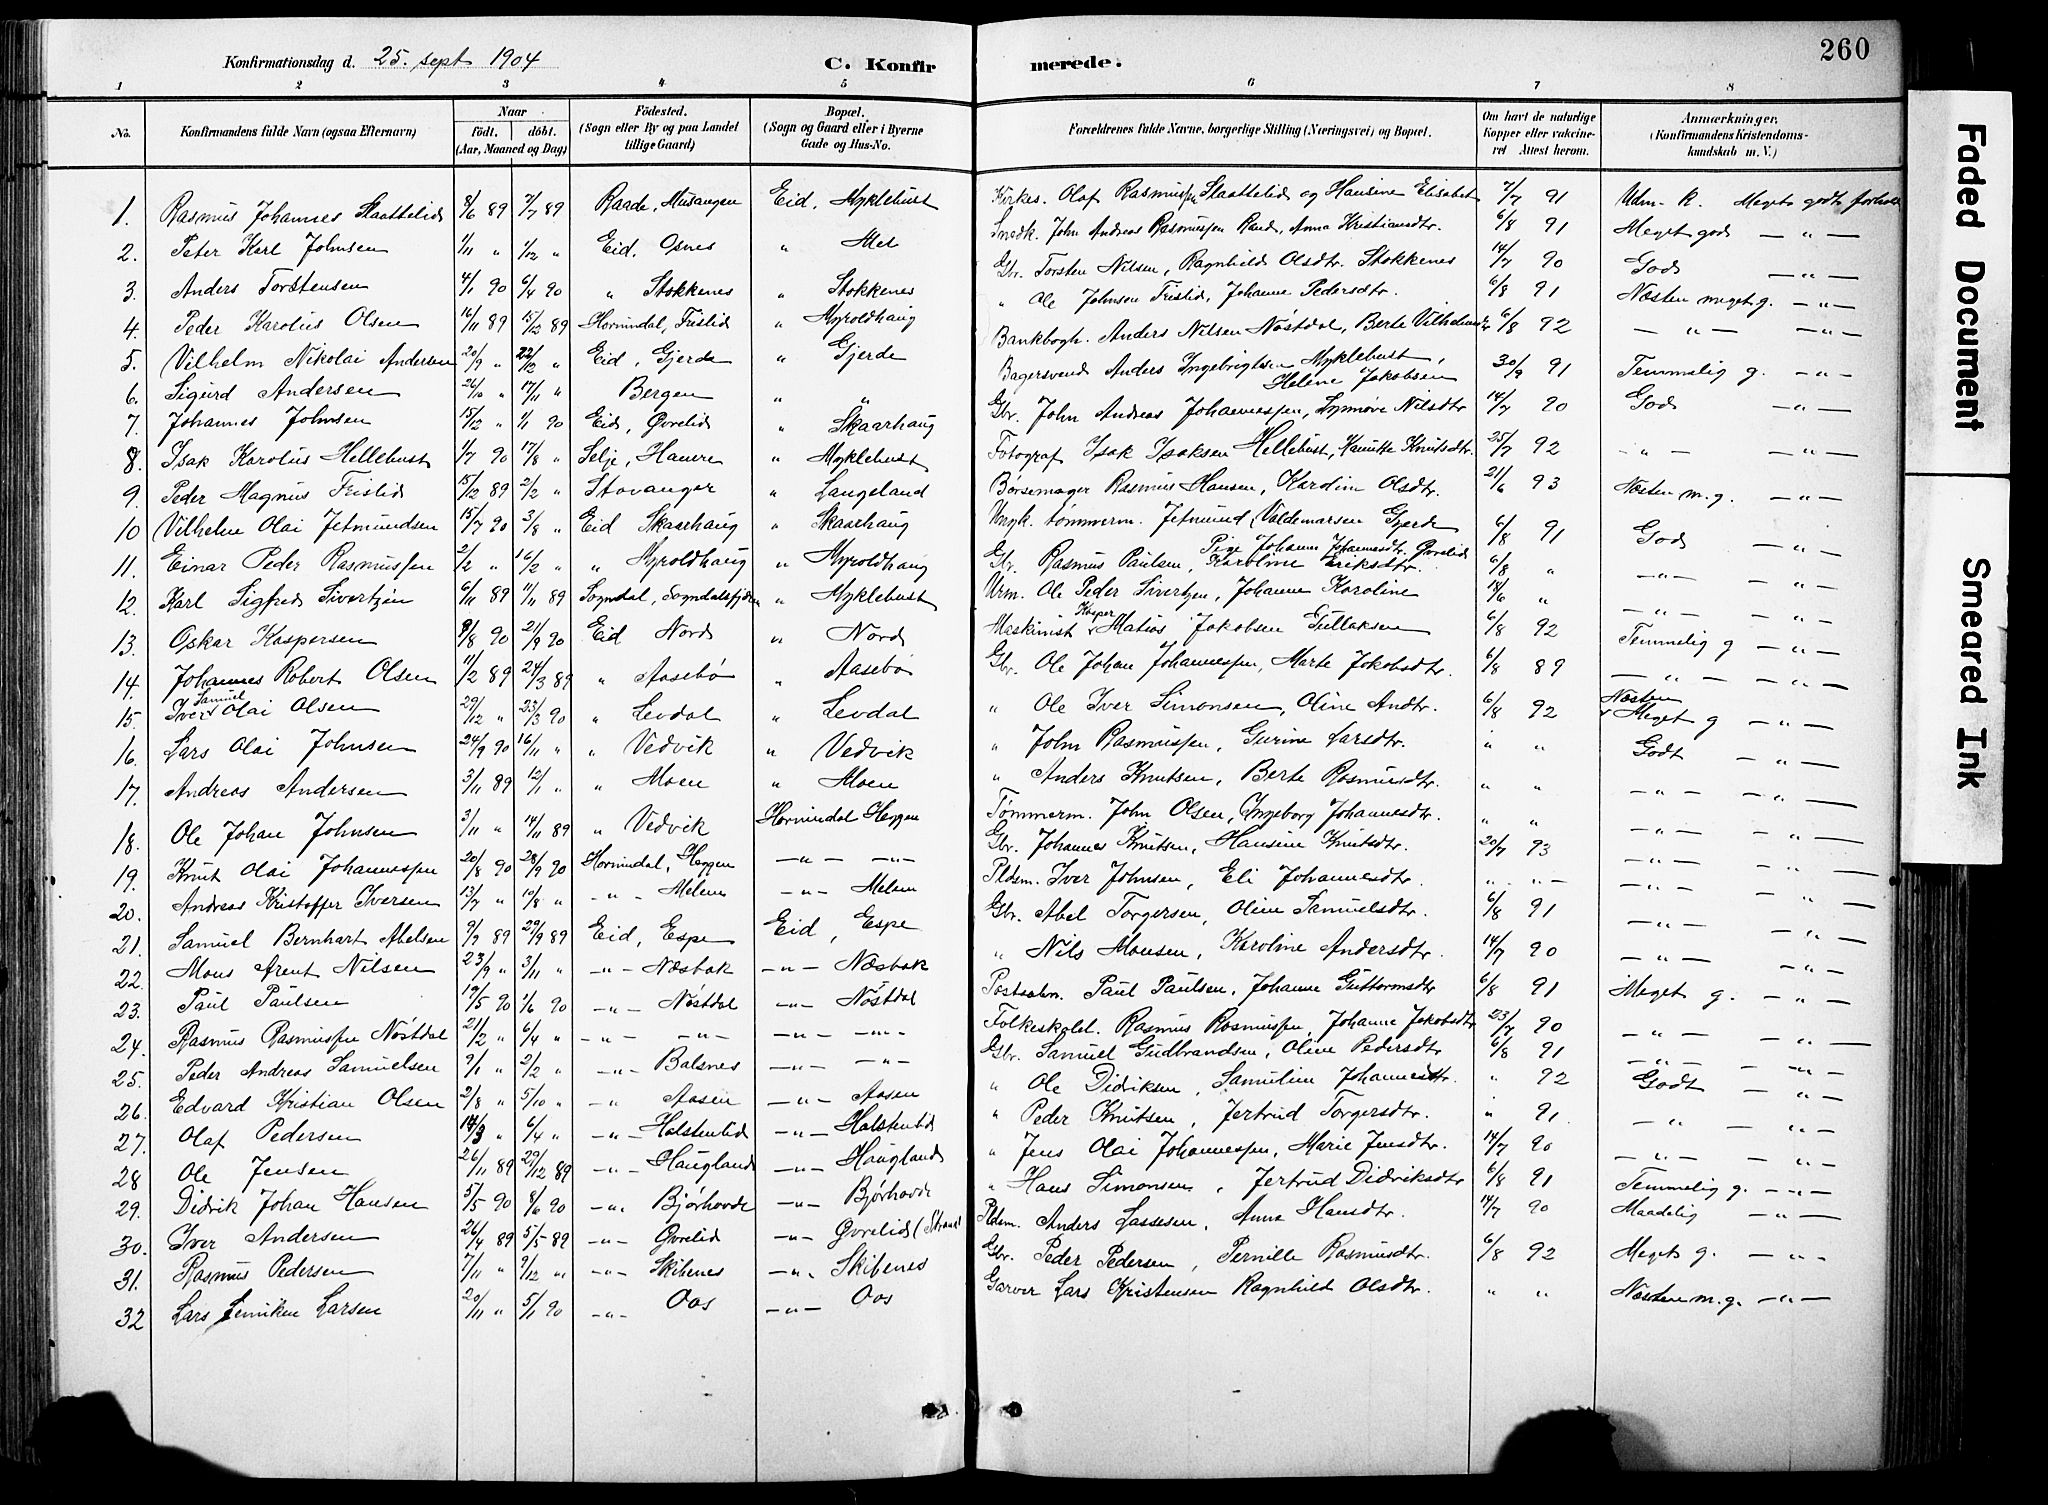 Konfirmationsdag d. 25. sept 1904 C. Konfir merede. 260
1 2 3 4 5 6 7 8
No. Konfirmandens fulde Navn (ogsaa Efternavn) Naar födt. döbt. (Aar, Maaned og Dag) Födested. (Sogn eller By og paa Landet tillige Gaard) Bopæl. (Sogn og Gaard eller i Byerne Gade og Hus-No. Forældrenes fulde Navne, borgerlige Stilling (Næringsvei) og Bopæl. Om havt de naturlige Kopper eller vakcineret Attest herom. Anmærkninger. (Konfirmandens Kristendomskundskab m. V.)
1. Rasmus Johannes Staattelid 8/6 89 7/7 89 Raade, Musangen Eid, Myklebust Kirkes. Olaf Rasmussen Staattelid og Hansine Elisabet 7/7 91 Udm. k. Meget godt forhold
2. Peter Karl Johnsen 1/11 " 1/12 " Eid, Osnes " Mel Snedk. John Andreas Rasmussen Rand, Anna Kristiansdtr. 6/8 91 Meget god — " —
3. Anders Torstensen 4/1 90 6/4 90 " Stokkenes " Stokkenes Gbr. Torsten Nilsen, Ragnhild Olsdtr. Stokkenes 14/7 90 God — " —
4. Peder Karolus Olsen 16/11 89 15/12 89 Hornindal, Tristid " Myroldhaug " Ole Johnsen Tristid, Johanne Pedersdtr. 6/8 91 Næsten meget g. — " —
5. Vilhelm Nikolai Andersen 20/9 " 22/12 " Eid, Gjerde " Gjerde Bankbogh. Anders Nilsen Nöstdal, Berte Vilhelmsdtr 6/8 92 — " — — " —
6. Sigurd Andersen 26/10 " 17/11 " Bergen " " Bagersvend Anders Ingebrigtsen Myklebust, Helene Jakobsen 30/9 91 Temmelig g. — " —
7. Johannes Johnsen 15/12 " 1/1 90 Eid, Øvrelid " Skaarhaug Gbr. John Andreas Johannessen, Synnøve Nilsdtr 14/7 90 God — " —
8. Isak Karolus Hellebust 1/7 90 17/8 " Selje, Havre " Myklebust Fotograf Isak Isaksen Hellebust, Hanutte Knutsdtr. 25/7 92 — " — — " —
9. Peder Magnus Tristid 15/12 89 2/2 " Stavanger " Langeland Børsemager Rasmus Hansen, Karoline Olsdtr. 21/6 93 Næsten m.g. — " —
10 Vilhelm Olai Jetmundsen 15/7 90 3/8 " Eid Skaarhaug " Skaarhaug Ungk. tømmerm. Jetmund Valdemarsen Gjerde Pige Johanne Johannesdtr. Øvrelid 6/8 91 God — " —
11. Einar Peder Rasmussen 2/2 " 16/2 " " Myroldhaug " Myroldhaug Gbr. Rasmus Paulsen, Karoline Eriksdtr. 6/8 " — " — — " —
12. Karl Sigfred Sivertsen 6/11 89 11/11 89 Sogndal, Sogndalsfjøren " Myklebust Urm. Ole Peder Sivertsen, Johanne Karoline 14/6 " — " — — " —
13. Oskar Kaspersen 9/8 90 21/9 90 Eid Nord " Nord Maskinist Kasper Matias Jakobsen Tullaksen 6/8 92 Temmelig g — " —
14. Johannes Robert Olsen 11/2 89 24/3 89 " Aasebø " Aasebø Gbr. Ole Johan Johannessen, Marte Jakobsdtr. 6/8 89 — " — — " —
15 Iver Samuel Olai Olsen 29/12 " 23/3 90 " Levdal " Levdal " Ole Iver Simonsen, Oline Andtr. 6/8 92 Næsten Meget g — " —
16. Lars Olai Johnsen 24/9 90 16/11 " " Vedvik " Vedvik " John Rasmussen, Gurine Larsdtr. " " Godt — " —
17. Andreas Andersen 3/11 89 12/1 " " Moen " Moen " Anders Knutsen, Berte Rasmusdtr. " " — " — — " —
18. Ole Johan Johnsen 3/11 " 14/11 89 " Vedvik Hornindal Heggen Tømmerm. John Olsen, Ingeborg Johannesdtr. " " — " — — " —
19. Knut Olai Johannessen 20/8 90 28/9 90 Hornindal, Heggen — " — — " — Gbr. Johannes Knutsen, Hansine Knutsdtr. 20/7 93 — " — — " —
20. Andreas Kristoffer Iversen 13/7 " 10/8 " — " — Melem — " — Melem Pldsm. Iver Johnsen, Eli Johannesdtr. " " — " — — " —
21. Samuel Bernhart Abelsen 9/9 89 29/9 89 Eid, Espe Eid, Espe Gbr. Abel Torgersen, Oline Samuelsdtr. 6/8 91 — " — — " —
22. Mons Arent Nilsen 23/9 " 3/11 " — " — Næsbak — " — Næsbak " Nils Monsen, Karoline Andersdtr. 14/7 90 — " — — " —
23. Paul Paulsen 19/5 90 1/6 90 — " — Nöstdal — " — Nöstdal Postaabn. Paul Paulsen, Johanne Guttormsdtr 6/8 91 Meget g. — " —
24. Rasmus Rasmussen Nöstdal 21/2 " 6/4 " — " — — " — — " — — " — Folkeskolel. Rasmus Rasmussen, Johanne Jakobsdtr 23/7 90 — " — — " —
25. Peder Andreas Samuelsen 9/1 " 2/2 " — " — Balsnes — " — — " — Gbr. Samuel Gudbrandsen, Oline Pedersdtr 6/8 91 — " — — " —
26. Edvard Kristian Olsen 2/8 " 5/10 " — " Aasen — " — Aasen " Ole Didriksen, Samuline Johannesdtr. " 92 Godt — " —
27. Olaf Pedersen 14/3 " 6/4 " — " — Holstenlid — " — Holstenlid " Peder Knutsen, Jertrud Torgersdtr. " 91 — " — — " —
28 Ole Jensen 26/11 89 29/12 89 — " — Haugland — " — Haugland " Jens Olai Johannessen, Marie Jensdtr. 14/7 90 — " — — " —
29. Didrik Johan Hansen 5/5 90 8/6 90 — " — Bjørhovde — " — Bjørhovde " Hans Simonsen, Jertrud Didriksdtr 6/8 91 Temmelig g. — " —
30. Iver Andersen 26/4 89 5/5 89 — " — Øvrelid — " — Øvrelid (Strand Pldsm. Anders Lassesen, Anna Hansdtr. 14/7 90 Maadelig — " —
31. Rasmus Pedersen 7/11 " 9/12 " — " — Skibenes — " — Skibenes Gbr. Peder Pedersen, Pernille Rasmusdtr. 6/8 92 Meget g. — " —
32 Lars Larsen 20/11 " 5/1 90 — " — Oos — " — Oos Garver Lars Kristensen Ragnhild Olsdtr. " " Næsten m.g. — " —
Faded Document
Smeared Ink